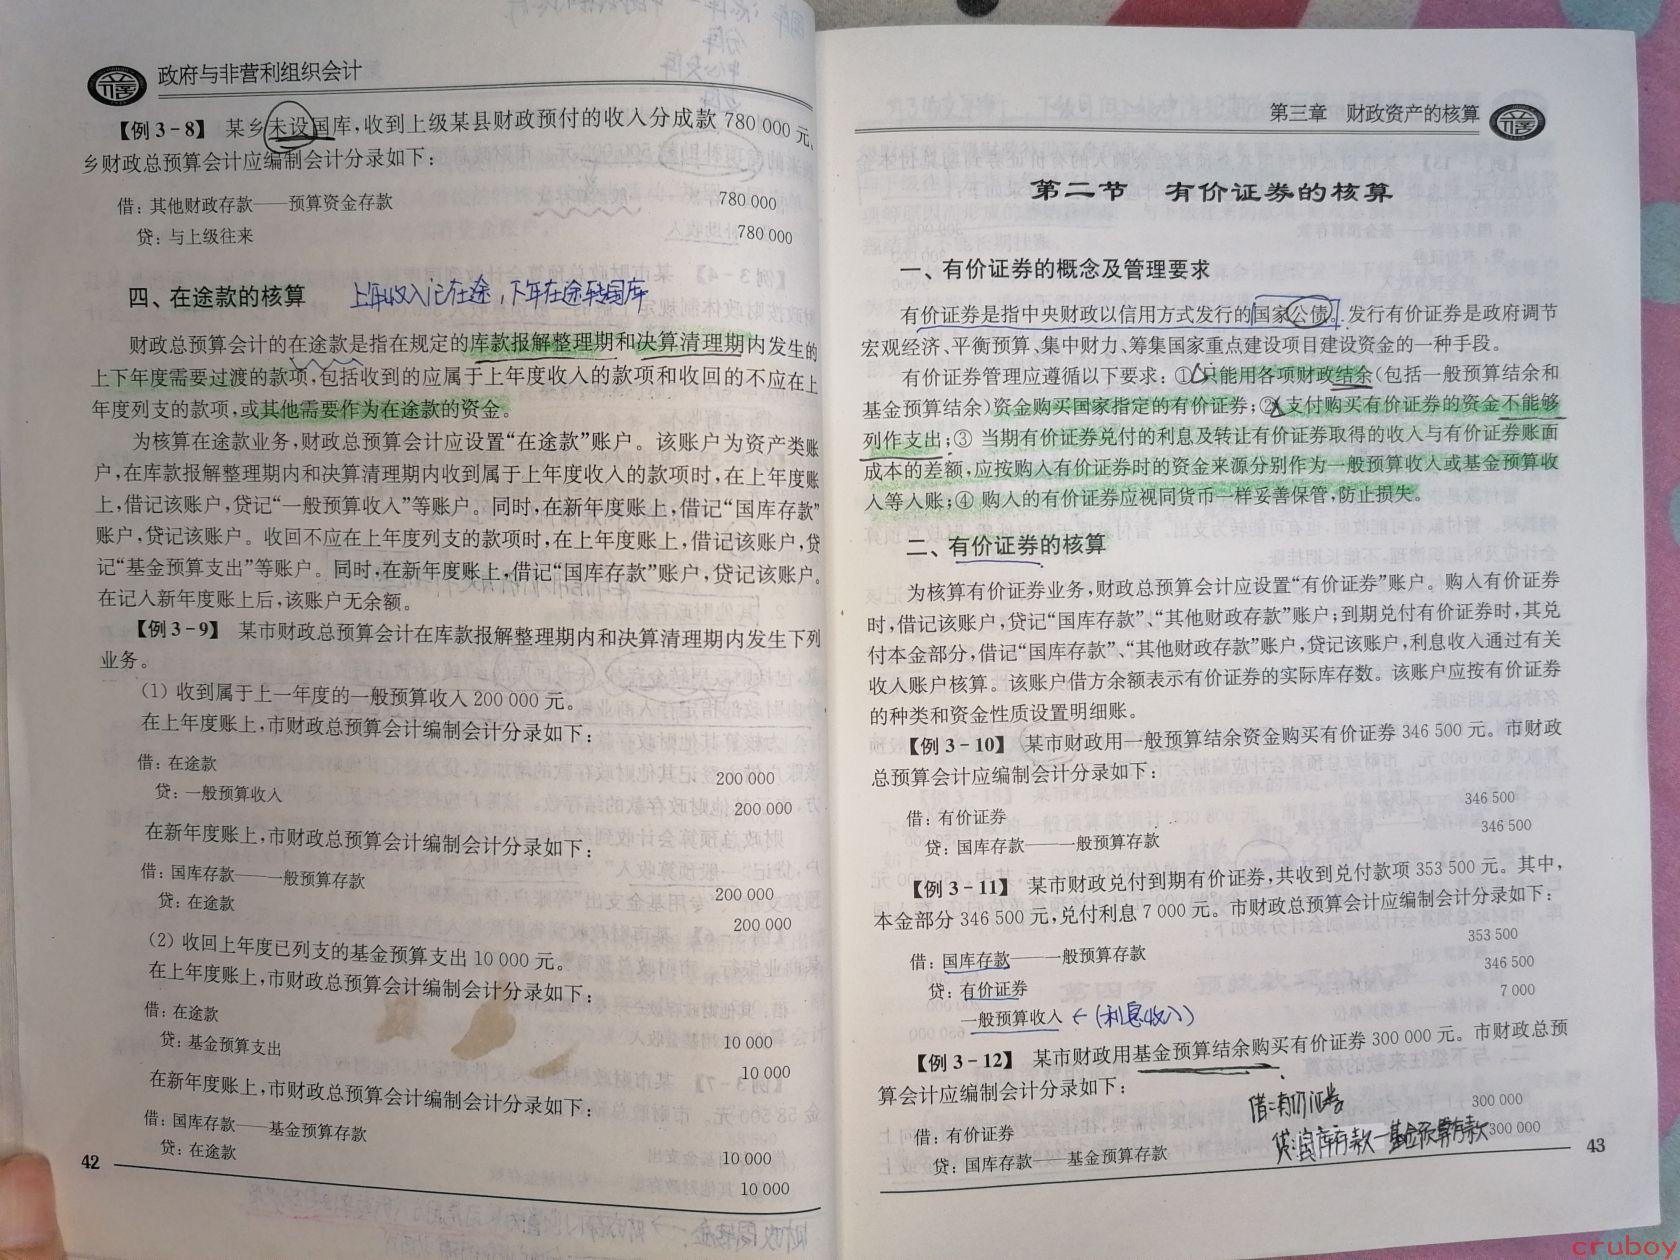 政府与非营利组织会计
【例 3-8】 某乡未设国库,收到上级某县财政预付的收入分成款 780 000 元。
乡财政总预算会计应编制会计分录如下:
借: 其他财政存款——预算资金存款 780 000
贷: 与上级往来 780 000
四、在途款的核算 上年收入记在途,下年在途转国库
财政总预算会计的在途款是指在规定的库款报解整理期和决算清理期内发生的
上下年度需要过渡的款项,包括收到的应属于上年度收入的款项和收回的不应在上
年度列支的款项,或其他需要作为在途款的资金。
为核算在途款业务,财政总预算会计应设置“在途款”账户。该账户为资产类账
户,在库款报解整理期内和决算清理期内收到属于上年度收入的款项时,在上年度账
上,借记该账户,贷记“一般预算收入”等账户。同时,在新年度账上,借记“国库存款”
账户,贷记该账户。收回不应在上年度列支的款项时,在上年度账上,借记该账户,贷
记“基金预算支出”等账户。同时,在新年度账上,借记“国库存款”账户,贷记该账户。
在记入新年度账上后,该账户无余额。
【例 3-9】 某市财政总预算会计在库款报解整理期内和决算清理期内发生下列
业务。
(1) 收到属于上一年度的一般预算收入 200 000 元。
在上年度账上,市财政总预算会计编制会计分录如下:
借: 在途款 200 000
贷: 一般预算收入 200 000
在新年度账上,市财政总预算会计编制会计分录如下:
借: 国库存款——一般预算存款 200 000
贷: 在途款 200 000
(2) 收回上年度已列支的基金预算支出 10 000 元。
在上年度账上,市财政总预算会计编制会计分录如下:
借: 在途款 10 000
贷: 基金预算支出 10 000
在新年度账上,市财政总预算会计编制会计分录如下:
借: 国库存款——基金预算存款 10 000
贷: 在途款 10 000
42
第三章 财政资产的核算
第二节 有价证券的核算
一、有价证券的概念及管理要求
有价证券是指中央财政以信用方式发行的国家公债。发行有价证券是政府调节
宏观经济、平衡预算、集中财力、筹集国家重点建设项目建设资金的一种手段。
有价证券管理应遵循以下要求: ① 只能用各项财政结余(包括一般预算结余和
基金预算结余)资金购买国家指定的有价证券; ② 支付购买有价证券的资金不能够
列作支出; ③ 当期有价证券兑付的利息及转让有价证券取得的收入与有价证券账面
成本的差额,应按购入有价证券时的资金来源分别作为一般预算收入或基金预算收
入等入账; ④ 购入的有价证券应视同货币一样妥善保管,防止损失。
二、有价证券的核算
为核算有价证券业务,财政总预算会计应设置“有价证券”账户。购入有价证券
时,借记该账户,贷记“国库存款”、“其他财政存款”账户;到期兑付有价证券时,其兑
付本金部分,借记“国库存款”、“其他财政存款”账户,贷记该账户,利息收入通过有关
收入账户核算。该账户借方余额表示有价证券的实际库存数。该账户应按有价证券
的种类和资金性质设置明细账。
【例 3-10】 某市财政用一般预算结余资金购买有价证券 346 500 元。市财政
总预算会计应编制会计分录如下:
借: 有价证券 346 500
贷: 国库存款——一般预算存款 346 500
【例 3-11】 某市财政兑付到期有价证券,共收到兑付款项 353 500 元。其中,
本金部分 346 500 元,兑付利息 7 000 元。市财政总预算会计应编制会计分录如下:
借: 国库存款——一般预算存款 353 500
贷: 有价证券 346 500
一般预算收入 ←(利息收入) 7 000
【例 3-12】 某市财政用基金预算结余购买有价证券 300 000 元。市财政总预
算会计应编制会计分录如下:
借:有价证券
贷:国库存款—基金预算存款
借: 有价证券 300 000
贷: 国库存款——基金预算存款 300 000
43
cruboy